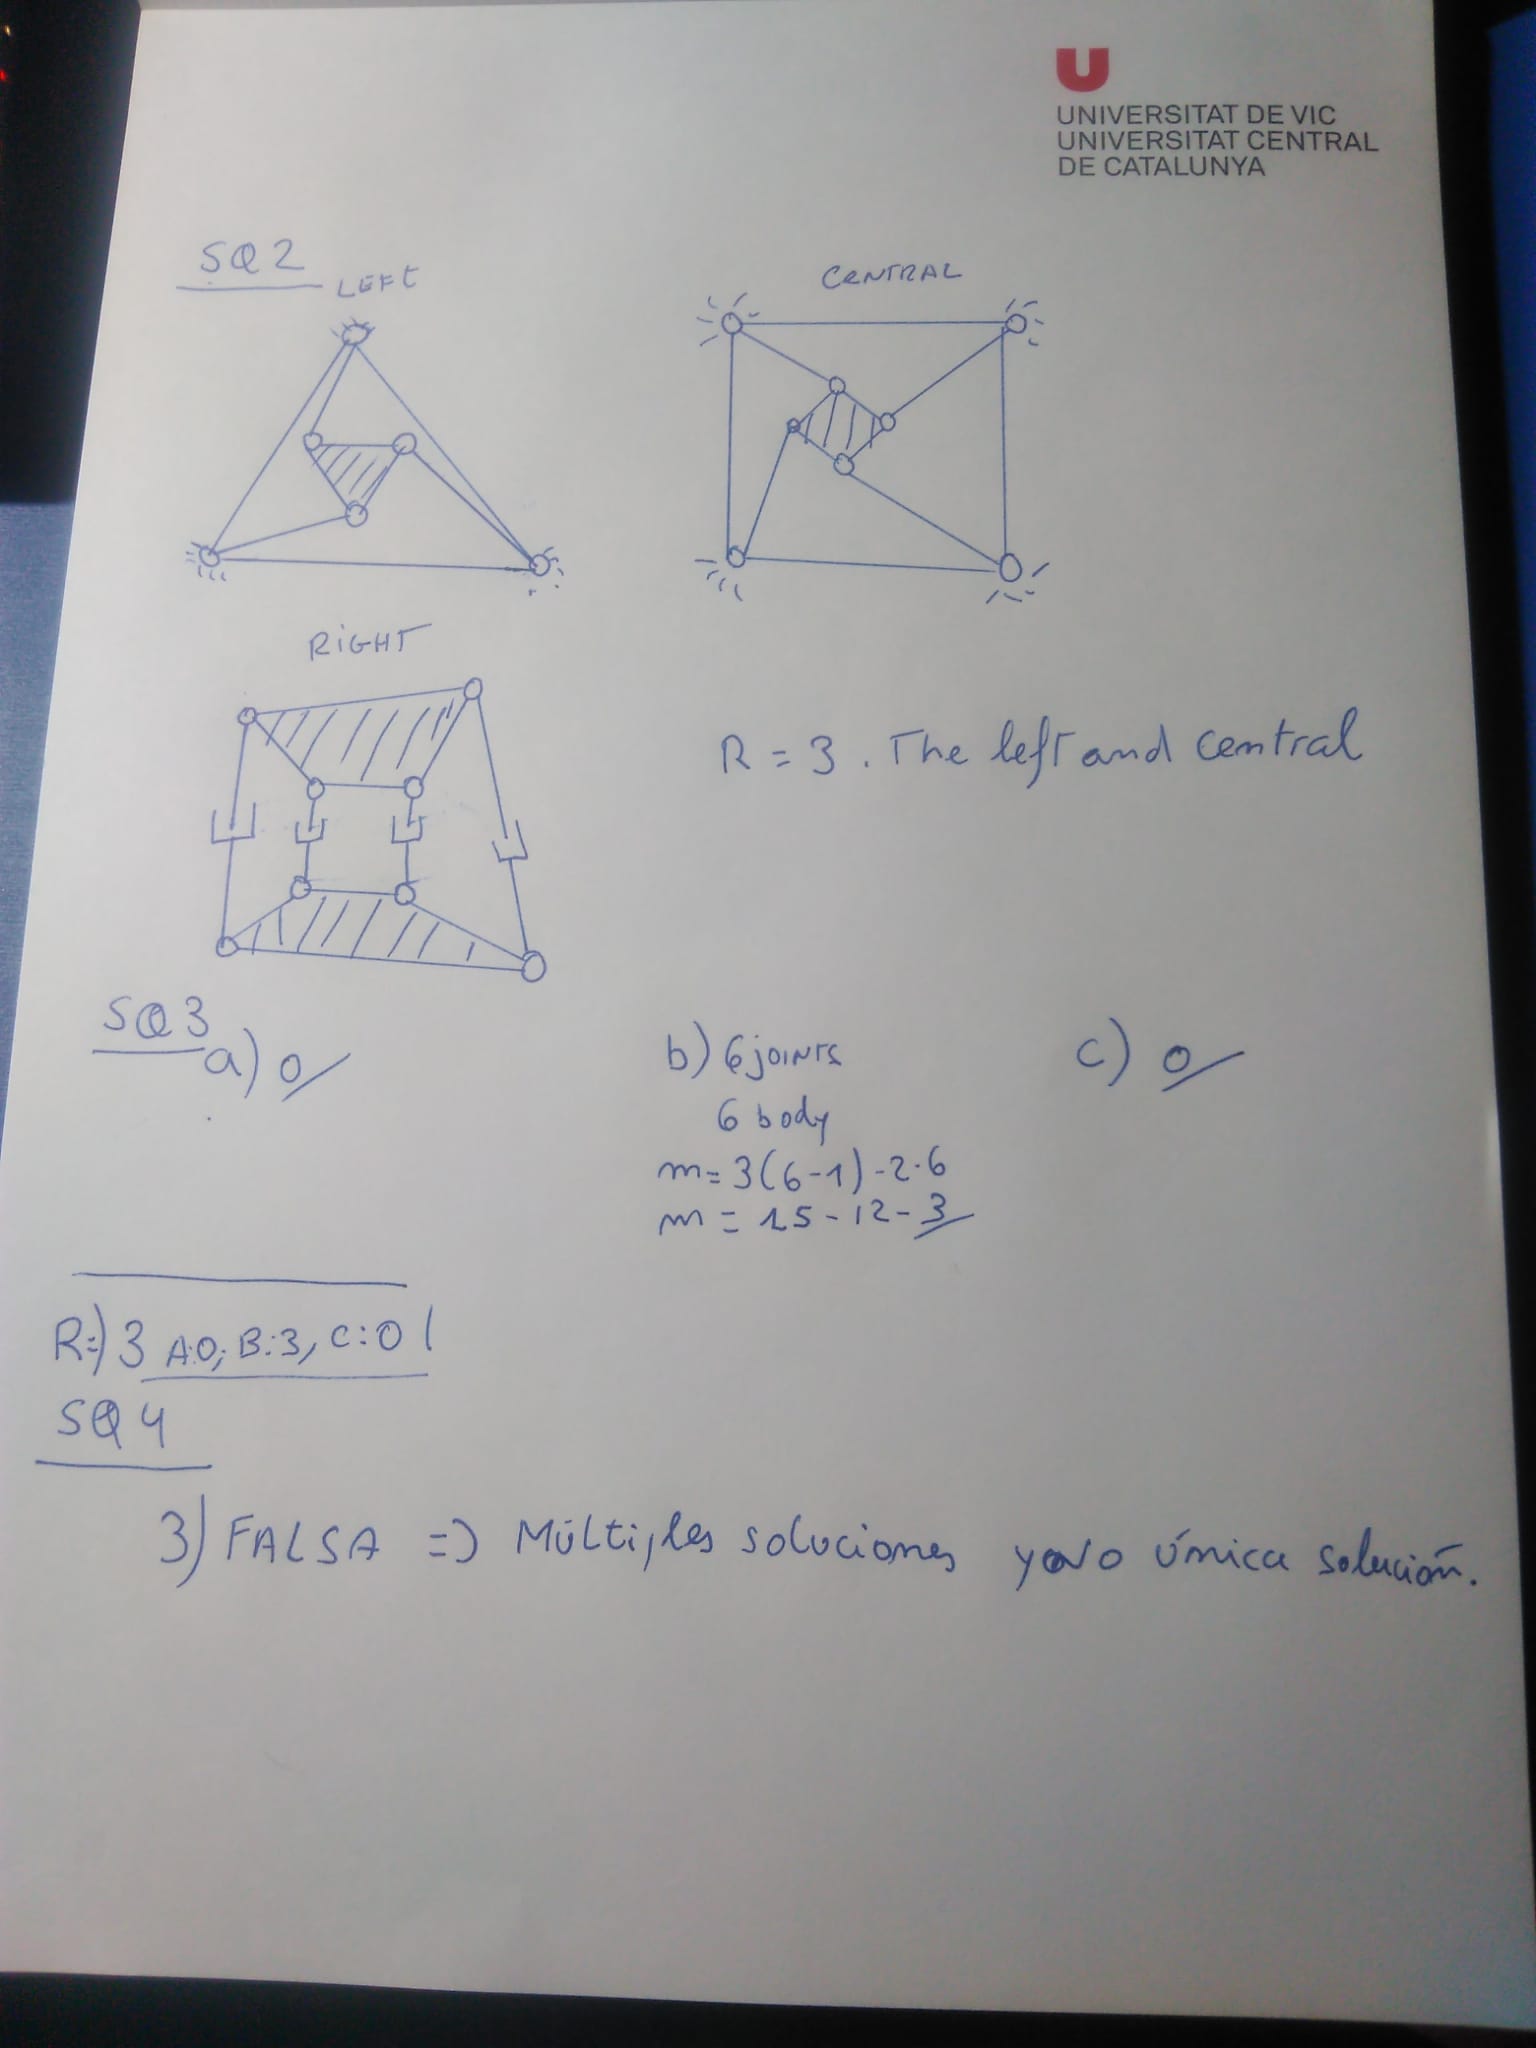 U
UNIVERSITAT DE VIC
UNIVERSITAT CENTRAL
DE CATALUNYA
SQ2
LEFT
CENTRAL
RIGHT
R = 3. The left and central
SQ3
a) 0
b) 6 joints
6 body
m = 3(6-1) - 2·6
m = 15 - 12 - 3
c) 0
R=) 3 A:0; B:3, C:0
SQ4
3) FALSA => Múltiples soluciones y no única solución.